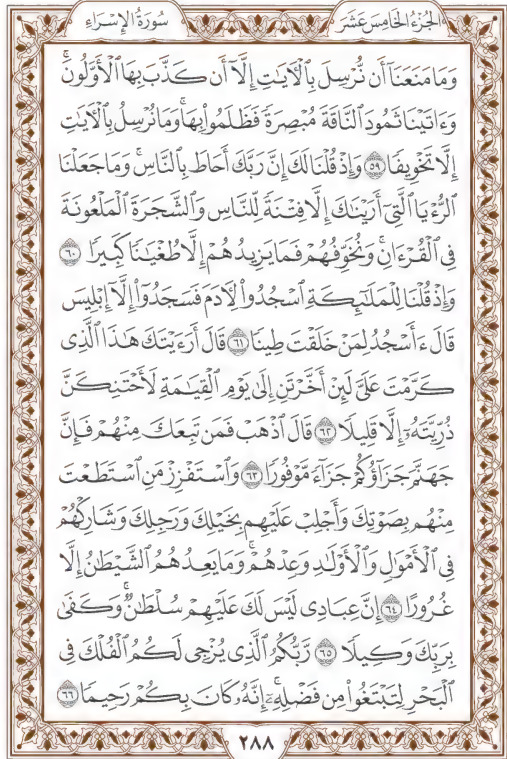 الجُزْءُ الخَامِسَ عَشَرَ
سُورَةُ الإِسْرَاءِ
وَمَا مَنَعَنَآ أَن نُّرْسِلَ بِٱلْأٓيَٰتِ إِلَّآ أَن كَذَّبَ بِهَا ٱلْأَوَّلُونَۚ
وَءَاتَيْنَا ثَمُودَ ٱلنَّاقَةَ مُبْصِرَةً فَظَلَمُوا۟ بِهَاۚ وَمَا نُرْسِلُ بِٱلْأٓيَٰتِ
إِلَّا تَخْوِيفًا ٥٩ وَإِذْ قُلْنَا لَكَ إِنَّ رَبَّكَ أَحَاطَ بِٱلنَّاسِۚ وَمَا جَعَلْنَا
ٱلرُّءْيَا ٱلَّتِىٓ أَرَيْنَٰكَ إِلَّا فِتْنَةً لِّلنَّاسِ وَٱلشَّجَرَةَ ٱلْمَلْعُونَةَ
فِى ٱلْقُرْءَانِۚ وَنُخَوِّفُهُمْ فَمَا يَزِيدُهُمْ إِلَّا طُغْيَٰنًا كَبِيرًا ٦٠
وَإِذْ قُلْنَا لِلْمَلَٰٓئِكَةِ ٱسْجُدُوا۟ لِـَٔادَمَ فَسَجَدُوٓا۟ إِلَّآ إِبْلِيسَ
قَالَ ءَأَسْجُدُ لِمَنْ خَلَقْتَ طِينًا ٦١ قَالَ أَرَءَيْتَكَ هَٰذَا ٱلَّذِى
كَرَّمْتَ عَلَىَّ لَئِنْ أَخَّرْتَنِ إِلَىٰ يَوْمِ ٱلْقِيَٰمَةِ لَأَحْتَنِكَنَّ
ذُرِّيَّتَهُۥٓ إِلَّا قَلِيلًا ٦٢ قَالَ ٱذْهَبْ فَمَن تَبِعَكَ مِنْهُمْ فَإِنَّ
جَهَنَّمَ جَزَآؤُكُمْ جَزَآءً مَّوْفُورًا ٦٣ وَٱسْتَفْزِزْ مَنِ ٱسْتَطَعْتَ
مِنْهُم بِصَوْتِكَ وَأَجْلِبْ عَلَيْهِم بِخَيْلِكَ وَرَجِلِكَ وَشَارِكْهُمْ
فِى ٱلْأَمْوَٰلِ وَٱلْأَوْلَٰدِ وَعِدْهُمْۚ وَمَا يَعِدُهُمُ ٱلشَّيْطَٰنُ إِلَّا
غُرُورًا ٦٤ إِنَّ عِبَادِى لَيْسَ لَكَ عَلَيْهِمْ سُلْطَٰنٌۚ وَكَفَىٰ
بِرَبِّكَ وَكِيلًا ٦٥ رَّبُّكُمُ ٱلَّذِى يُزْجِى لَكُمُ ٱلْفُلْكَ فِى
ٱلْبَحْرِ لِتَبْتَغُوا۟ مِن فَضْلِهِۦٓۚ إِنَّهُۥ كَانَ بِكُمْ رَحِيمًا ٦٦
٢٨٨